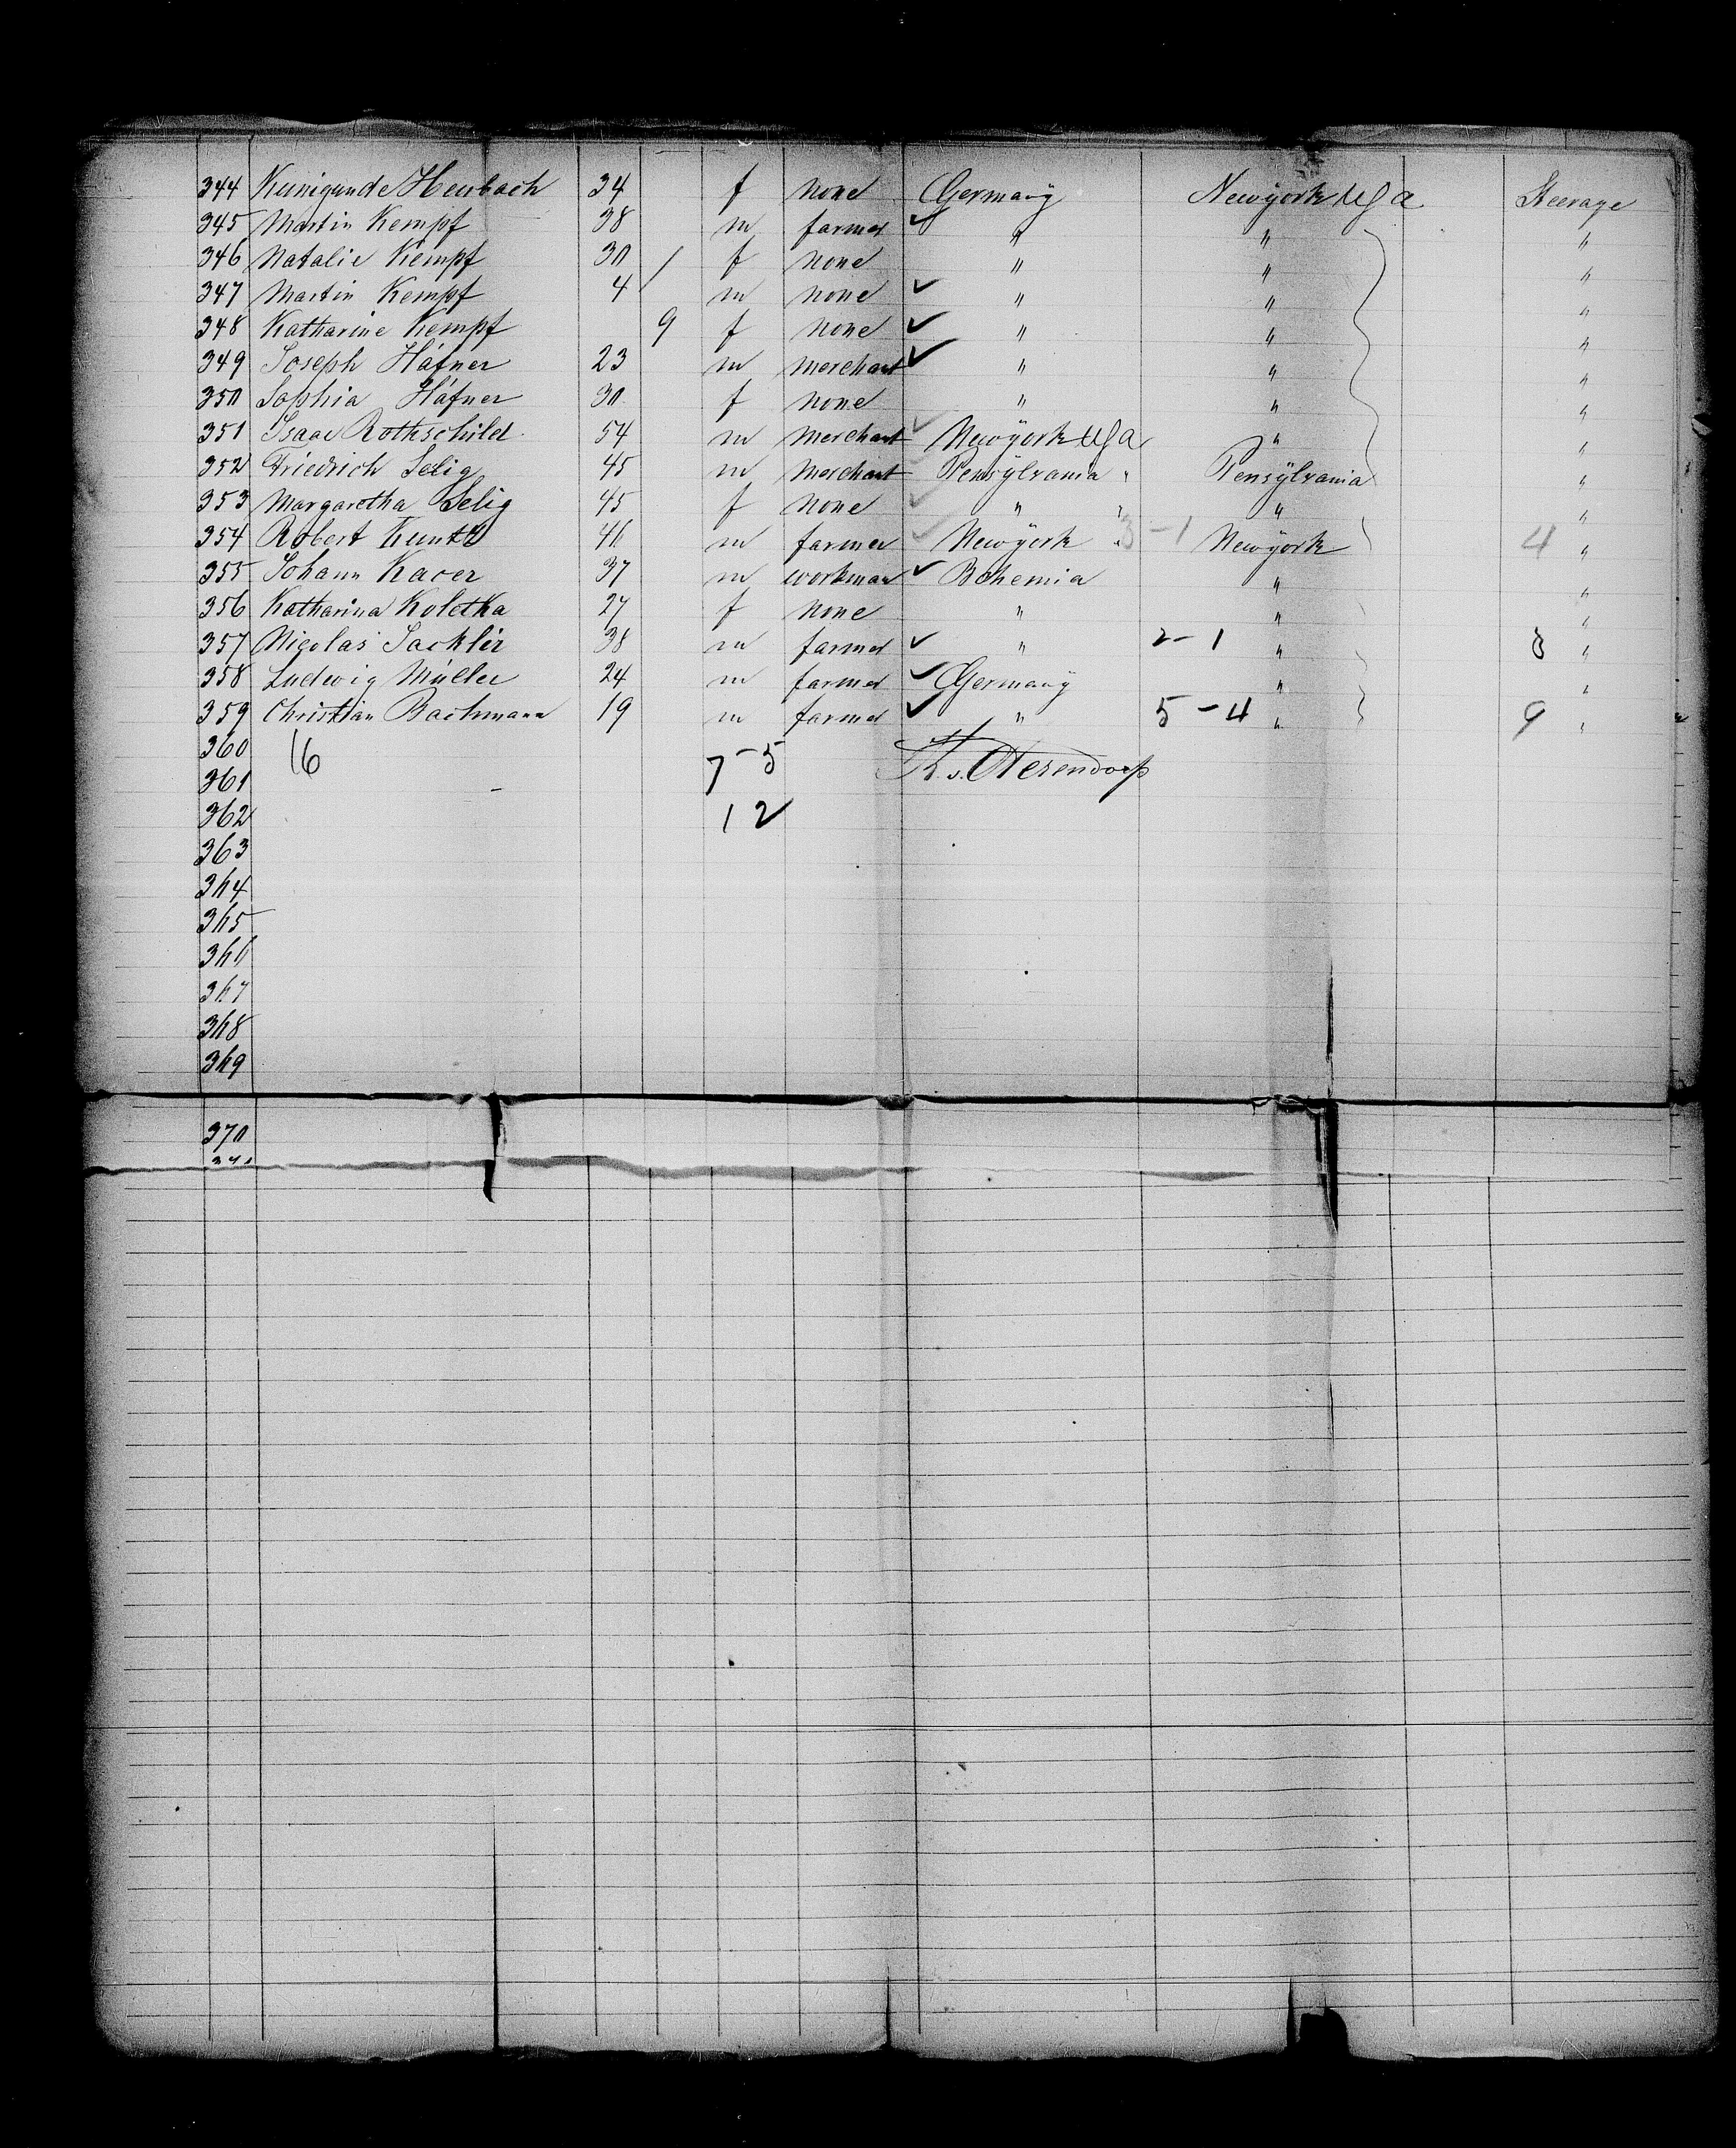 344 Kunigunde Heubach 34 f none Germany Newÿork USA Steerage
345 Martin Kempf 38 m farmer ✓ " " "
346 Natalie Kempf 30 f none " " "
347 Martin Kempf 4 m none ✓ " " "
348 Katharine Kempf 9 f none ✓ " " "
349 Joseph Häfner 23 m merchant ✓ " " "
350 Sophia Häfner 30 f none " " "
351 Isaac Rothschild 54 m merchant ✓ Newÿork USA " "
352 Friedrich Selig 45 m merchant Pensÿlvania " Pensÿlvania "
353 Margaretha Selig 45 f none ✓ " " " "
354 Robert 46 m farmer ✓ Newÿork " 3-1 Newÿork 4 "
355 Johann Kacer 37 m workman ✓ Bohemia " "
356 Katharina Koletka 27 f none " " "
357 Nicolas Sackler 38 m farmer ✓ " 2-1 " 3 "
358 Ludwig Müller 24 m farmer ✓ Germanÿ " "
359 Christian Bachmann 19 m farmer ✓ " 5-4 " 9 "
360 16 7-5
361
362 12
363
364
365
366
367
368
369
370
371